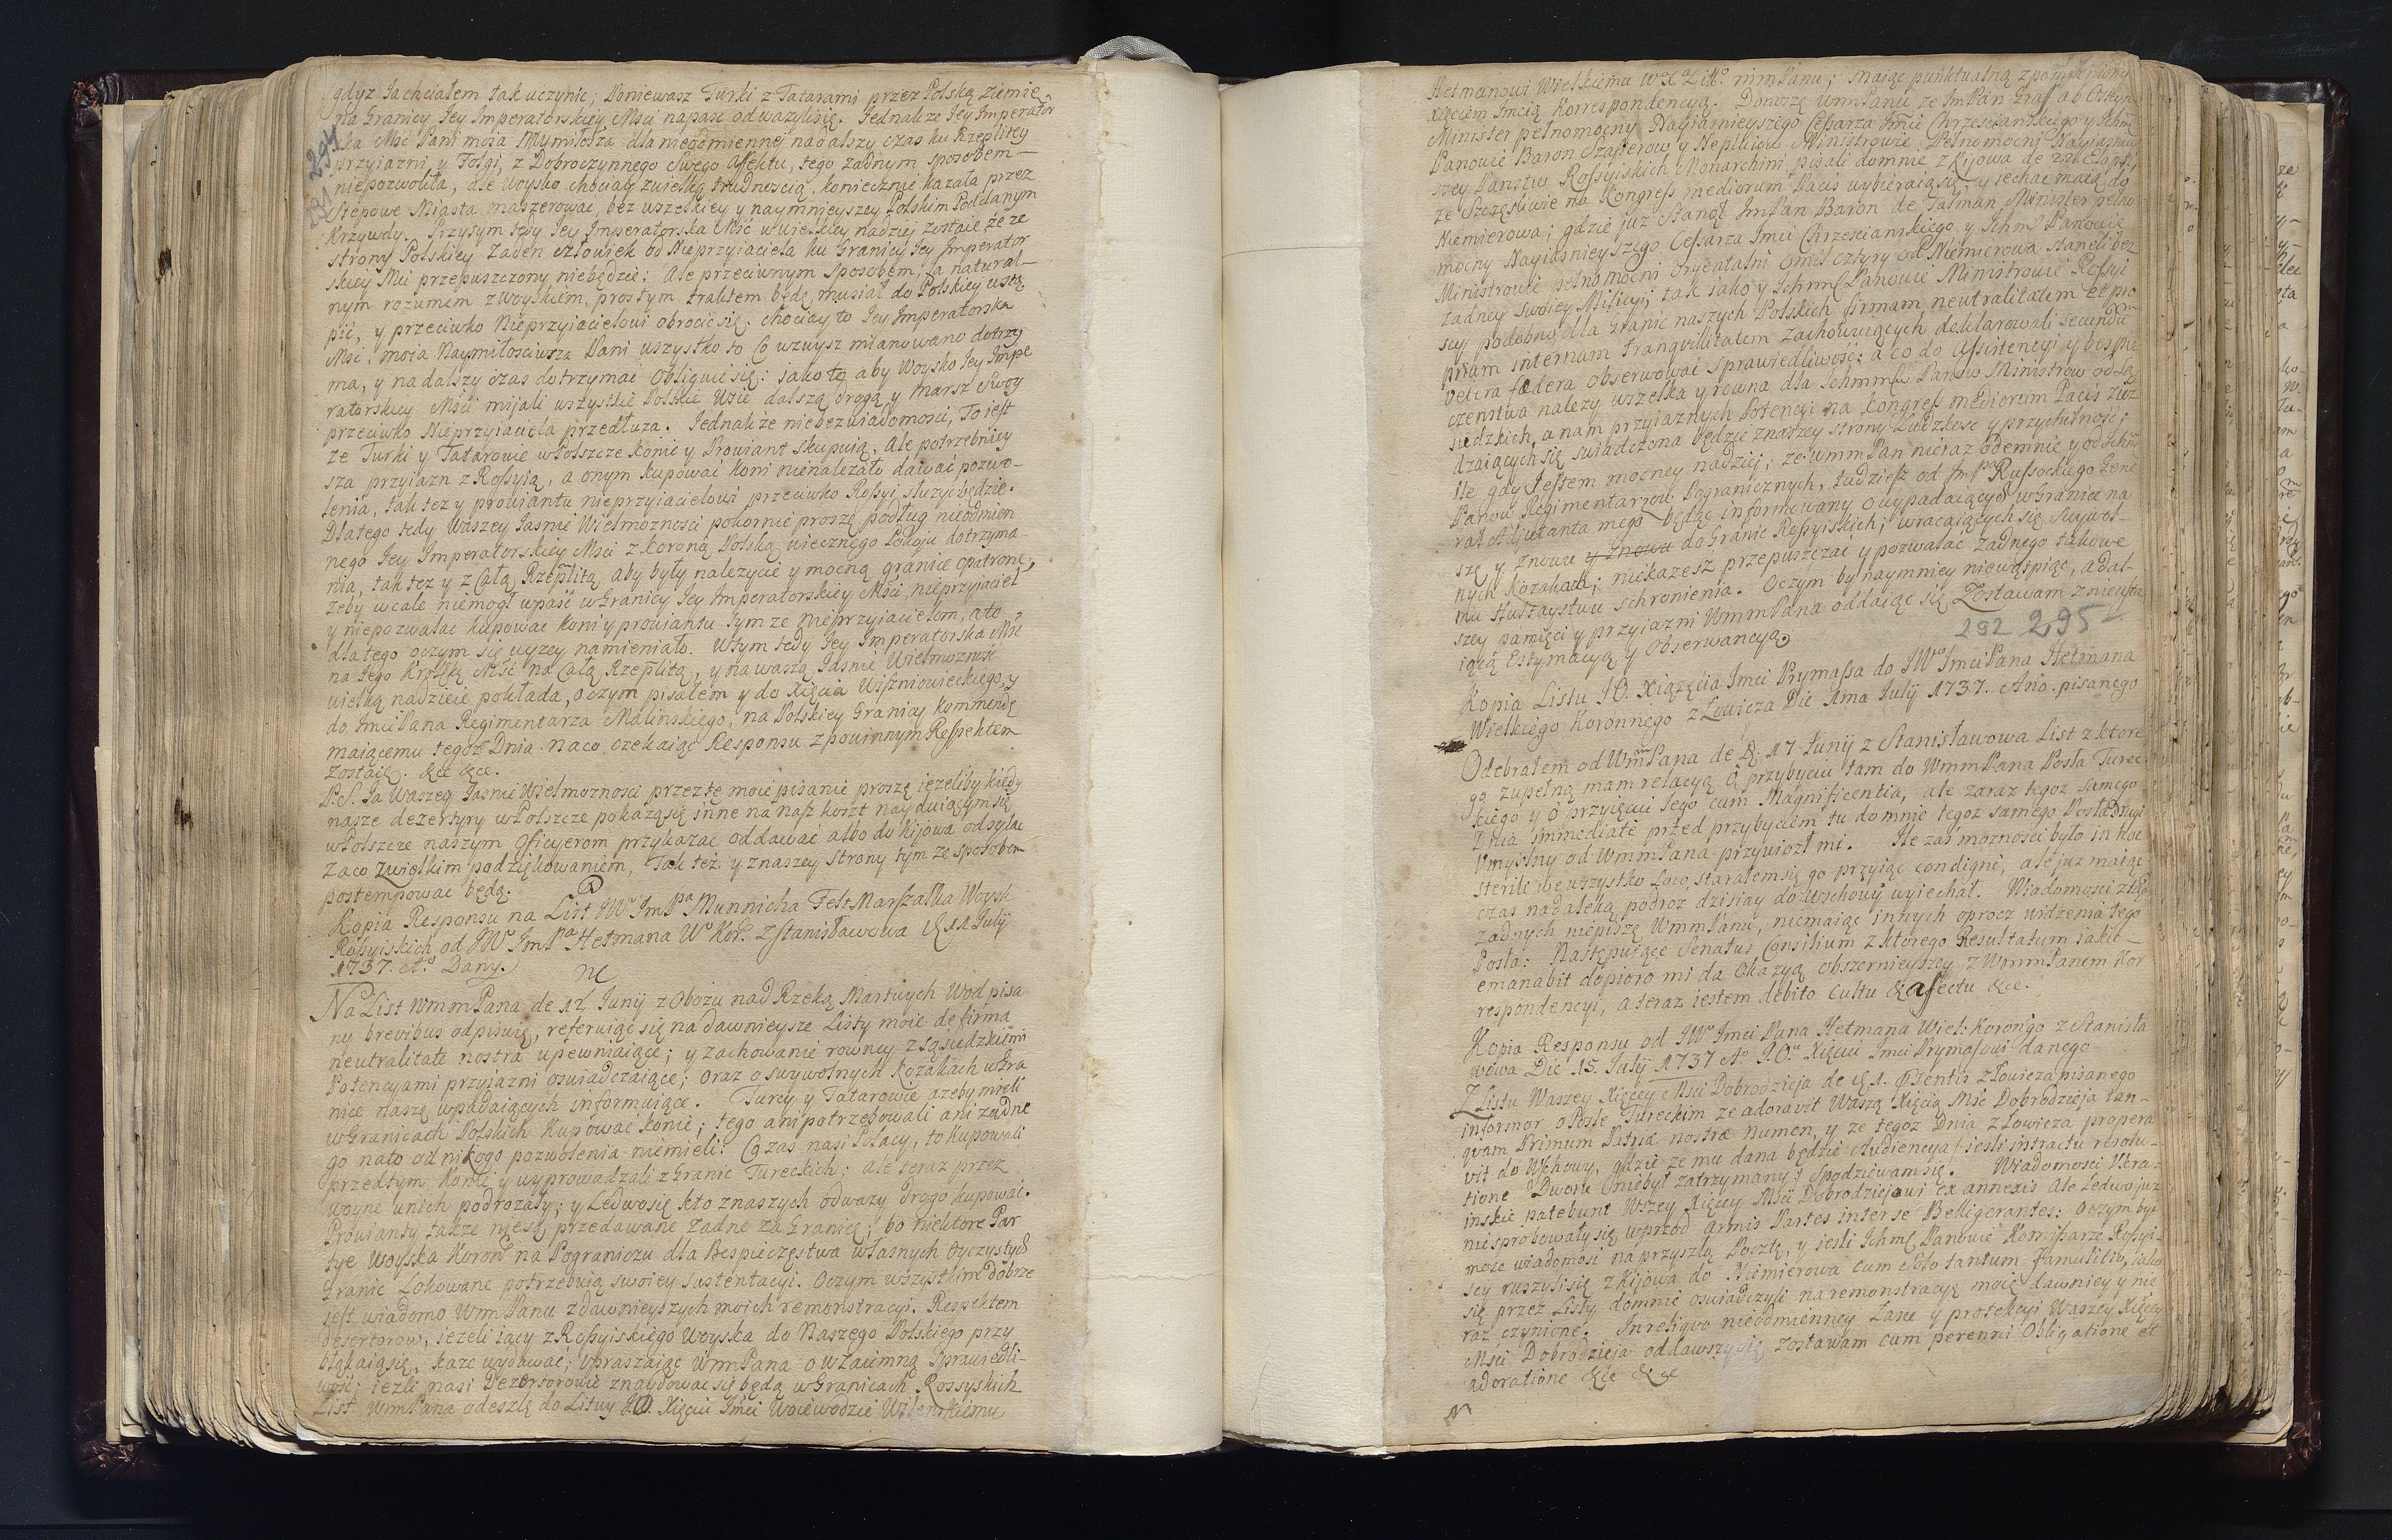 gdyz Iachciałem tak uczynic; Poniewasz Turki z Tatarami przez Polską ziemię
na Granicy Iey Imperatorskiey Msci napasc odwazylisię. Iednakze Iey Imperator
ska Msc Pani moia dlanieodmienney nadalszy czas ku Rzeplitey
przyiazni, y Folgi, z Dobroczynnego Swego Afektu, tego zadnym sposobem
niepozwoliła, ale Woysko chociay zwielką trudnoscią, koniecznie kazała przez
Stepowe Miasta maszerowac, bez wszelkiey y naymnieyszey Polskim Poddanym
Krzywdy. Przytym tedy Iey Imperatorska Msc wwielkiey nadziei zostaie że ze
strony Polskiey Zaden człowiek od Nieprzyiaciela ku Granicy Iey Imperator
skiey Msci przepuszczony niebędzie: Ale przeciwnym Sposobem, Ia natural-
nym rozumem zwoyskiem, prostym traktem będę musiał do Polskiey wstą
pic, y przeciwko Nieprzyiacielowi obrocic się. chociay to Iey Imperatorska
Msc, moia Naymiłosciwsza Pani wszystko to Co wzwysz mianowano dotrzy
ma, y nadalszy czas dotrzymac Obliguie się: iako to aby Woysko Iey Impe
ratorskiey Msci mijali wszystkie Polskie Wsie dalszą drogą y Marsz Swoy
przeciwko Nieprzyiaciela przedłuza. Iednakże niebezwiadomosci, To iest
ze Turki y Tatarowie wPolszcze Konie y Prowiant skupuią, Ale potrzebniey
sza przyiazn z Rossyią, a onym kupowac koni nienalezało dawać pozwo-
lenia, tak tez y prowiantu nieprzyiacielowi przeciwko Rossyi słuzyć będzie.
Dlatego tedy Waszey Iasnie Wielmoznosci pokornie proszę podług nieodmien
nego Iey Imperatorskiey Msci z Koroną Polską wiecznego Pokoju dotrzyma-
nia, tak tez y z Całą Rzeplitą aby były nalezycie y mocną granice opatrone,
zeby wcale niemogł wpasc wGranicy Iey Imperatorskiey Msci, nieprzyiaciel
y niepozwalac kupowac koni y prowiantu tymze Nieprzyiacielom, a to
dlatego oczym się wyzey namieniało. Wtym tedy Iey Imperatorska Msc
na Iego Krolską Msc na Całą Rzeplitą, y na waszą Iasnie Wielmoznosc
wielką nadzieię pokłada, oczym pisałem y do Xięcia Wiszniowieckiego, y
do Imci Pana Regimentarza Malinskiego, na Polskiey Granicy kommendę
maiącemu tegoz Dnia. naco czekaiąc Responsu zpowinnym Respektem
zostaię. &ce &ce.
P. S. Ia Waszey Iasnie Wielmoznosci przez tę moie pisanie proszę iezeliby kiedy
nasze dezertyry wPolszcze pokazasię inne na nasz koszt nayduiącymsię
wPolszcze naszym Oficyerom przykazac oddawać albo do Kijowa odsyłac
Zaco zwielkim podziękowaniem, Tak też y znaszey Strony tym ze sposobem
postempowac będą.
Kopia Responsu na List JW ImPa Munnicha Felt Marszałka Woysk
Rossyiskich od JW ImPa Hetmana W Kor. z Stanisławowa 11 Iulij
1737. Ao Dany.
Na List WmmPana de 12 Iunij z Obozu nad Rzeką Martwych Wod pisa
ny brevibus odpisuię, referuiąc się na dawnieysze Listy moie de firma
neutralitate nostra upewniaiące; y zachowanie rowney zSąsiedzkiemi
Potencyami przyiazni oswiadczaiące; oraz o swywolnych Kozakach wGra
nice naszę wpadaiących informuiące. Turcy y Tatarowie azeby mieli
wGranicach Polskich Kupowac konie; tego ani potrzebowali ani zadne
go nato od nikogo pozwolenia niemieli: Czas nasi Polacy, to kupowali
przedtym Konie y wyprowadzali z Granic Tureckich; ale teraz przez
woynę unich podrozały; y Ledwosię kto znaszych odwazy drogo kupować.
Prowianty takze niesą przedawane zadne za Granicę; bo niektore Par
tye Woyska Koron na Pograniczu dla Bespieczęstwa własnych Oyczystych
Granic Lokowane potrzebuią swoiey Sustentacyi. Oczym wszystkim dobrze
iest wiadomo WmPanu zdawnieyszych moich remonstracyi. Respektem
Desertorow, iezeli iacy z Rossyiskiego Woyska do Naszego Polskiego przy
błąkaiąsię, kazę wydawać; upraszaiąc WmPana o wzaiemną Sprawiedli-
wosc; iezli nasi Dezertorowie znaydowac się będą wGranicach Rossyskich
List WmPana odeszlę do Litwy JO. Xięciu Imci Woiewodzie Wilenskiemu
294
Hetmanowi Wielkiemu mmPanu; maiąc punktualną zpomienionym
Xięciem Imcią Korrespondencyą. Donoszę WmmPanu ze ImPan Graff ab Osteyn
Minister pełnomocny Nayiasnieyszego Cessarza Imci Chrzescianskiego y Ichm
Panowie Baron Szafierow y Nepluiow Ministrowie Pełnomocni Nayiasniey
szey Panstw Rossyiskich Monarchini pisali domnie z Kijowa de 22 Elapsi,
ze Szczęsliwie na Kongress mediorum Pacis wybieraiąsię, y iechac maią do
Niemierowa; gdzie juz Stanął ImPan Baron de Talman Minister pełno-
mocny Nayiasnieyszego Cessarza Imci Chrzescianskiego y Ichm Panowie
Ministrowie pełnomocni Oryentalni Omil cztyry od Niemierowa staneli bez
zadney swoiey Milicyi; tak iako y Ichmm Panowie Ministrowie Rossyi
scy podobno, dla Granic naszych Polskich firmam neutralitatem et pro
priam internam tranqvillitatem zachowuiących deklarowali secundum
vetera fœdera obserwować sprawiedliwość: a co do Assistencyi y bespie
czenstwa nalezy wszelka y rowna dla Ichmm Panow Ministrow od Są
siedzkich, a nam przyiaznych Potencyi na Kongress mediorum Pacis ziez
dzaiących się swiadczona będzie znaszey strony Ludzkosc y przychylnosc;
Ile gdy Iestem mocney nadziei; ze WmmPan nieraz odemnie y od Ichm
Panow Regimentarzow Pogranicznych, tudziesz od ImP Russockiego Gene
rał Adiutanta mego będąc informowany o wypadaiących wGranice na
szę y znowu y znowu do Granic Rossyiskich; wracaiących się Swywol-
nych Kozakach; niekazesz przepuszczać y pozwalać zadnego takowe
mu Hultaystwu schronienia. Oczym by naymniey niewątpiąc, a dal-
szey pamięci y przyiazni WmmPana oddaiąc się Zostawam znieusta
iącą Estymacyą y Obserwancyą.
292 295
Kopia Listu JO. Xiązęcia Imci Prymassa do JW Imci Pana Hetmana
Wielkiego Koronnego z Łowicza Die 1ma Iulij 1737. Ano. pisanego
Odebrałem od WmmPana de 17 Iunij z Stanisławowa List z ktore
go zupełną mam relacyą O przybyciu tam do WmmPana Posła Turec
kiego y O przyięciu Iego cum Magnificentia, ale zaraz tegoz samego
Dnia immediate przed przybyciem tu do mnie tegoz samego Posła Drugi
Umyslny od WmmPana przywiozł mi. Ile zas moznosci było in hoc
sterili we wszystko Loco, starałemsię go przyiąc condignè, ale juz maiąc
czas nadaleką podroz dzisiay do Wschowy wyiechał. Wiadomosci
zadnych niepiszę WmmPanu, niemaiąc innych oprocz widzenia tego
Posła: Następuiące Senatus Consilium z ktorego Resultatum iakie
emanabit dopioro mi da Okazyą obszernieyszey z WmmPanem Kor
respondencyi, a teraz iestem debito cultu & afectu &ce.
Kopia Responsu od JW Imci Pana Hetmana Wiel: Koron'go z Stanisła
wowa Die 15. Iulij 1737 Ao J.O. Xięciu Imci Prymasowi danego
Z Listu Waszey Xięcey Msci Dobrodzieja de 1. præsentis z Łowicza pisanego
informor o Posle Tureckim ze adoravit Waszą Xięcią Msc Dobrodzieja tan-
qvam Primum Patriæ nostræ Numen, y ze tegoz Dnia z Łowicza propera
vit do Wschowy, gdzie ze mu dana będzie Audiencya / iesli intractu resolu-
tione Dworu niebył zatrzymany / spodziewamsię. Wiadomosci Ukra-
inskie patebunt Wszey Xięcey Msci Dobrodziejowi ex annexis Ale Ledwo juz
niesprobowały się wprzod armis Partes inter se Belligerantes: oczym byc
moze wiadomosc na przyszłą Pocztę, y iesli Ichmc Panowie Komissarze Rossyi-
scy ruszylisię z Kijowa do Niemierowa cum Solo tantum Famulitio, iako
się przez Listy domnie oswiadczyli na remonstracyę moię dawniey y nie
raz czynione. Inreliqvo nieodmienney Łasce y protekcyi Waszey Xięcey
Msci Dobrodzieja oddawszysię zostawam cum perenni Obligatione et
adoratione &ce &ce